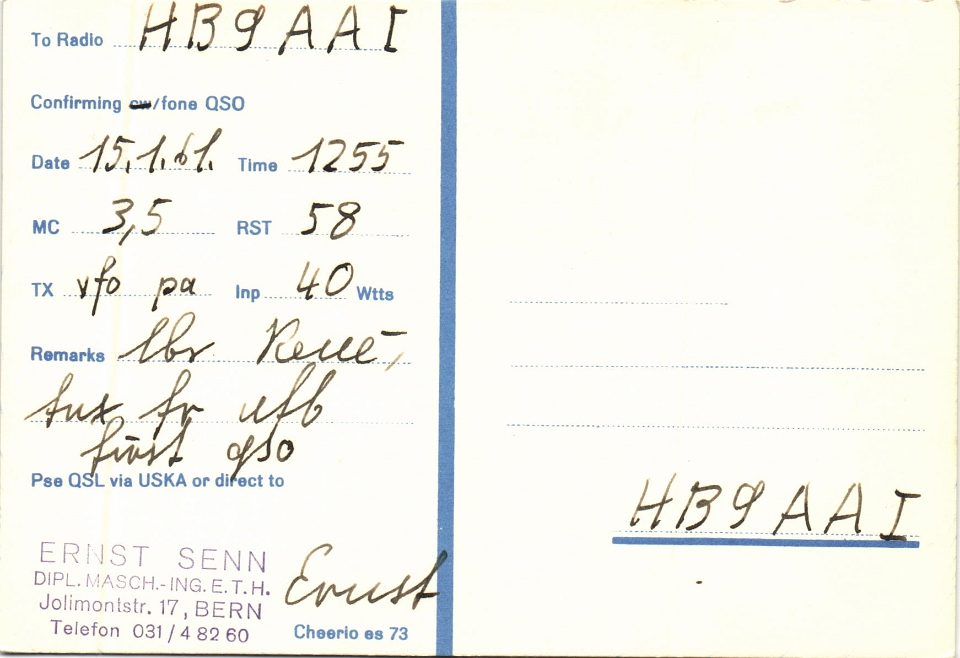 To Radio HB9AAI
Confirming cw/fone QSO
Date 15.1.61. Time 1255
MC 3,5 RST 58
TX vfo pa Inp 40 Wtts
Remarks lbr René,
tnx fr ufb
first qso
Pse QSL via USKA or direct to
ERNST SENN
DIPL. MASCH.-ING. E.T.H.
Jolimontstr. 17, BERN
Telefon 031/4 82 60
Ernst
Cheerio es 73
HB9AAI